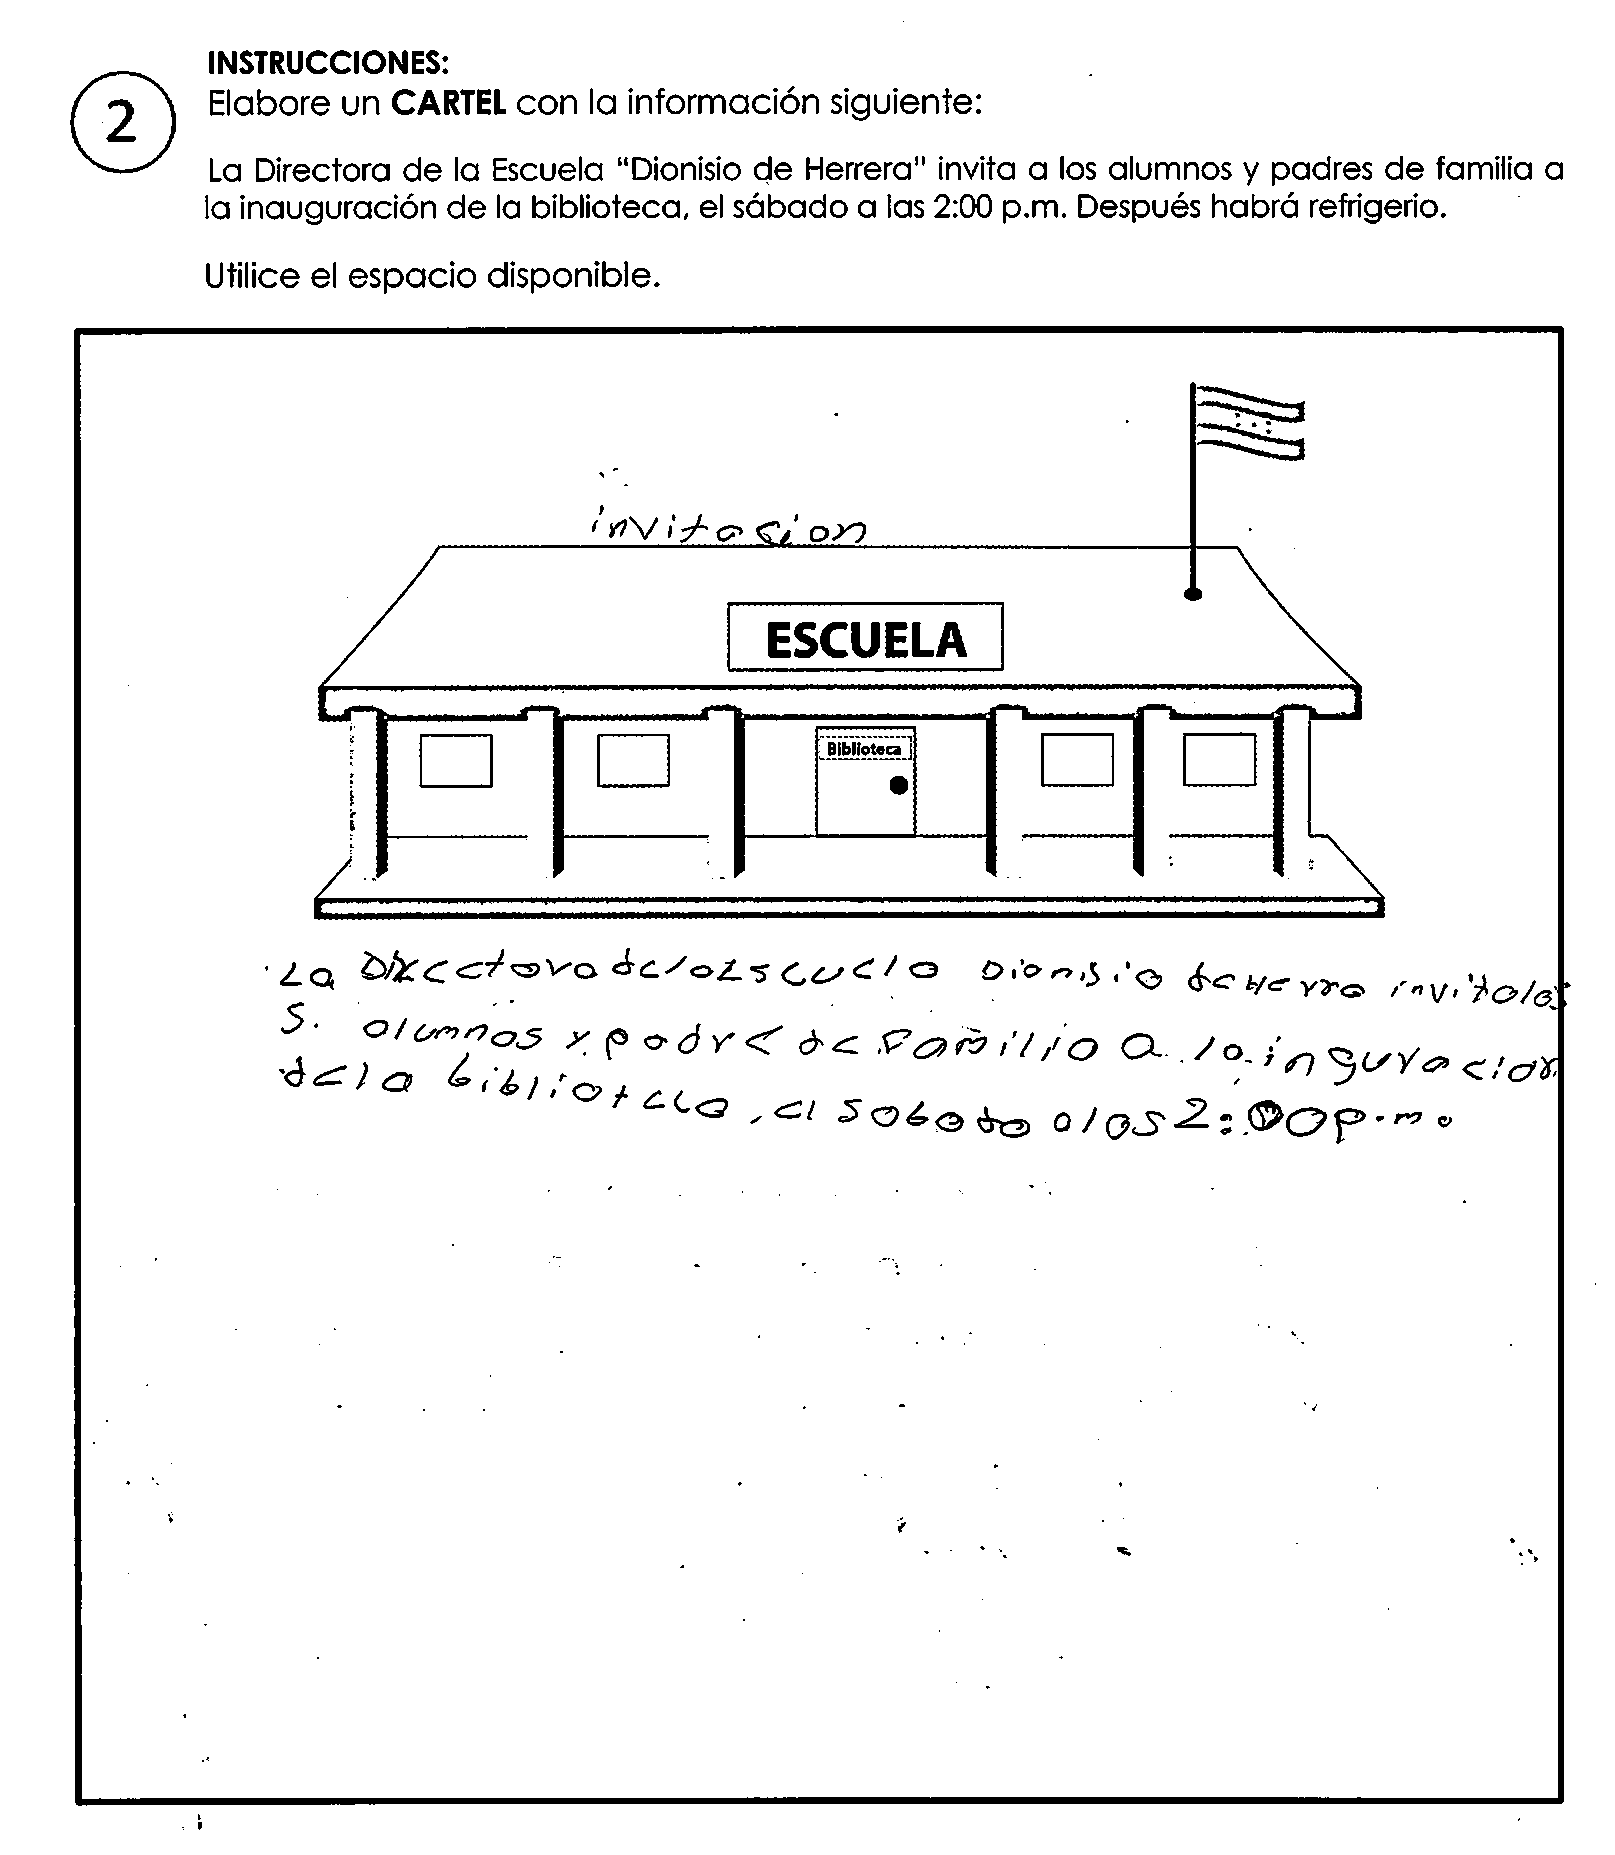 INSTRUCCIONES:
2
Elabore un CARTEL con la información siguiente:
La Directora de la Escuela "Dionisio de Herrera" invita a los alumnos y padres de familia a
la inauguración de la biblioteca, el sábado a las 2:00 p.m. Después habrá refrigerio.
Utilice el espacio disponible.
invitacion
ESCUELA
Biblioteca
La Directora de la Escuela Dionisio de Herra invita los
S. alumnos y padre de Familia a la inguracion
de la biblioteca, el sabado a las 2:00 p.m.